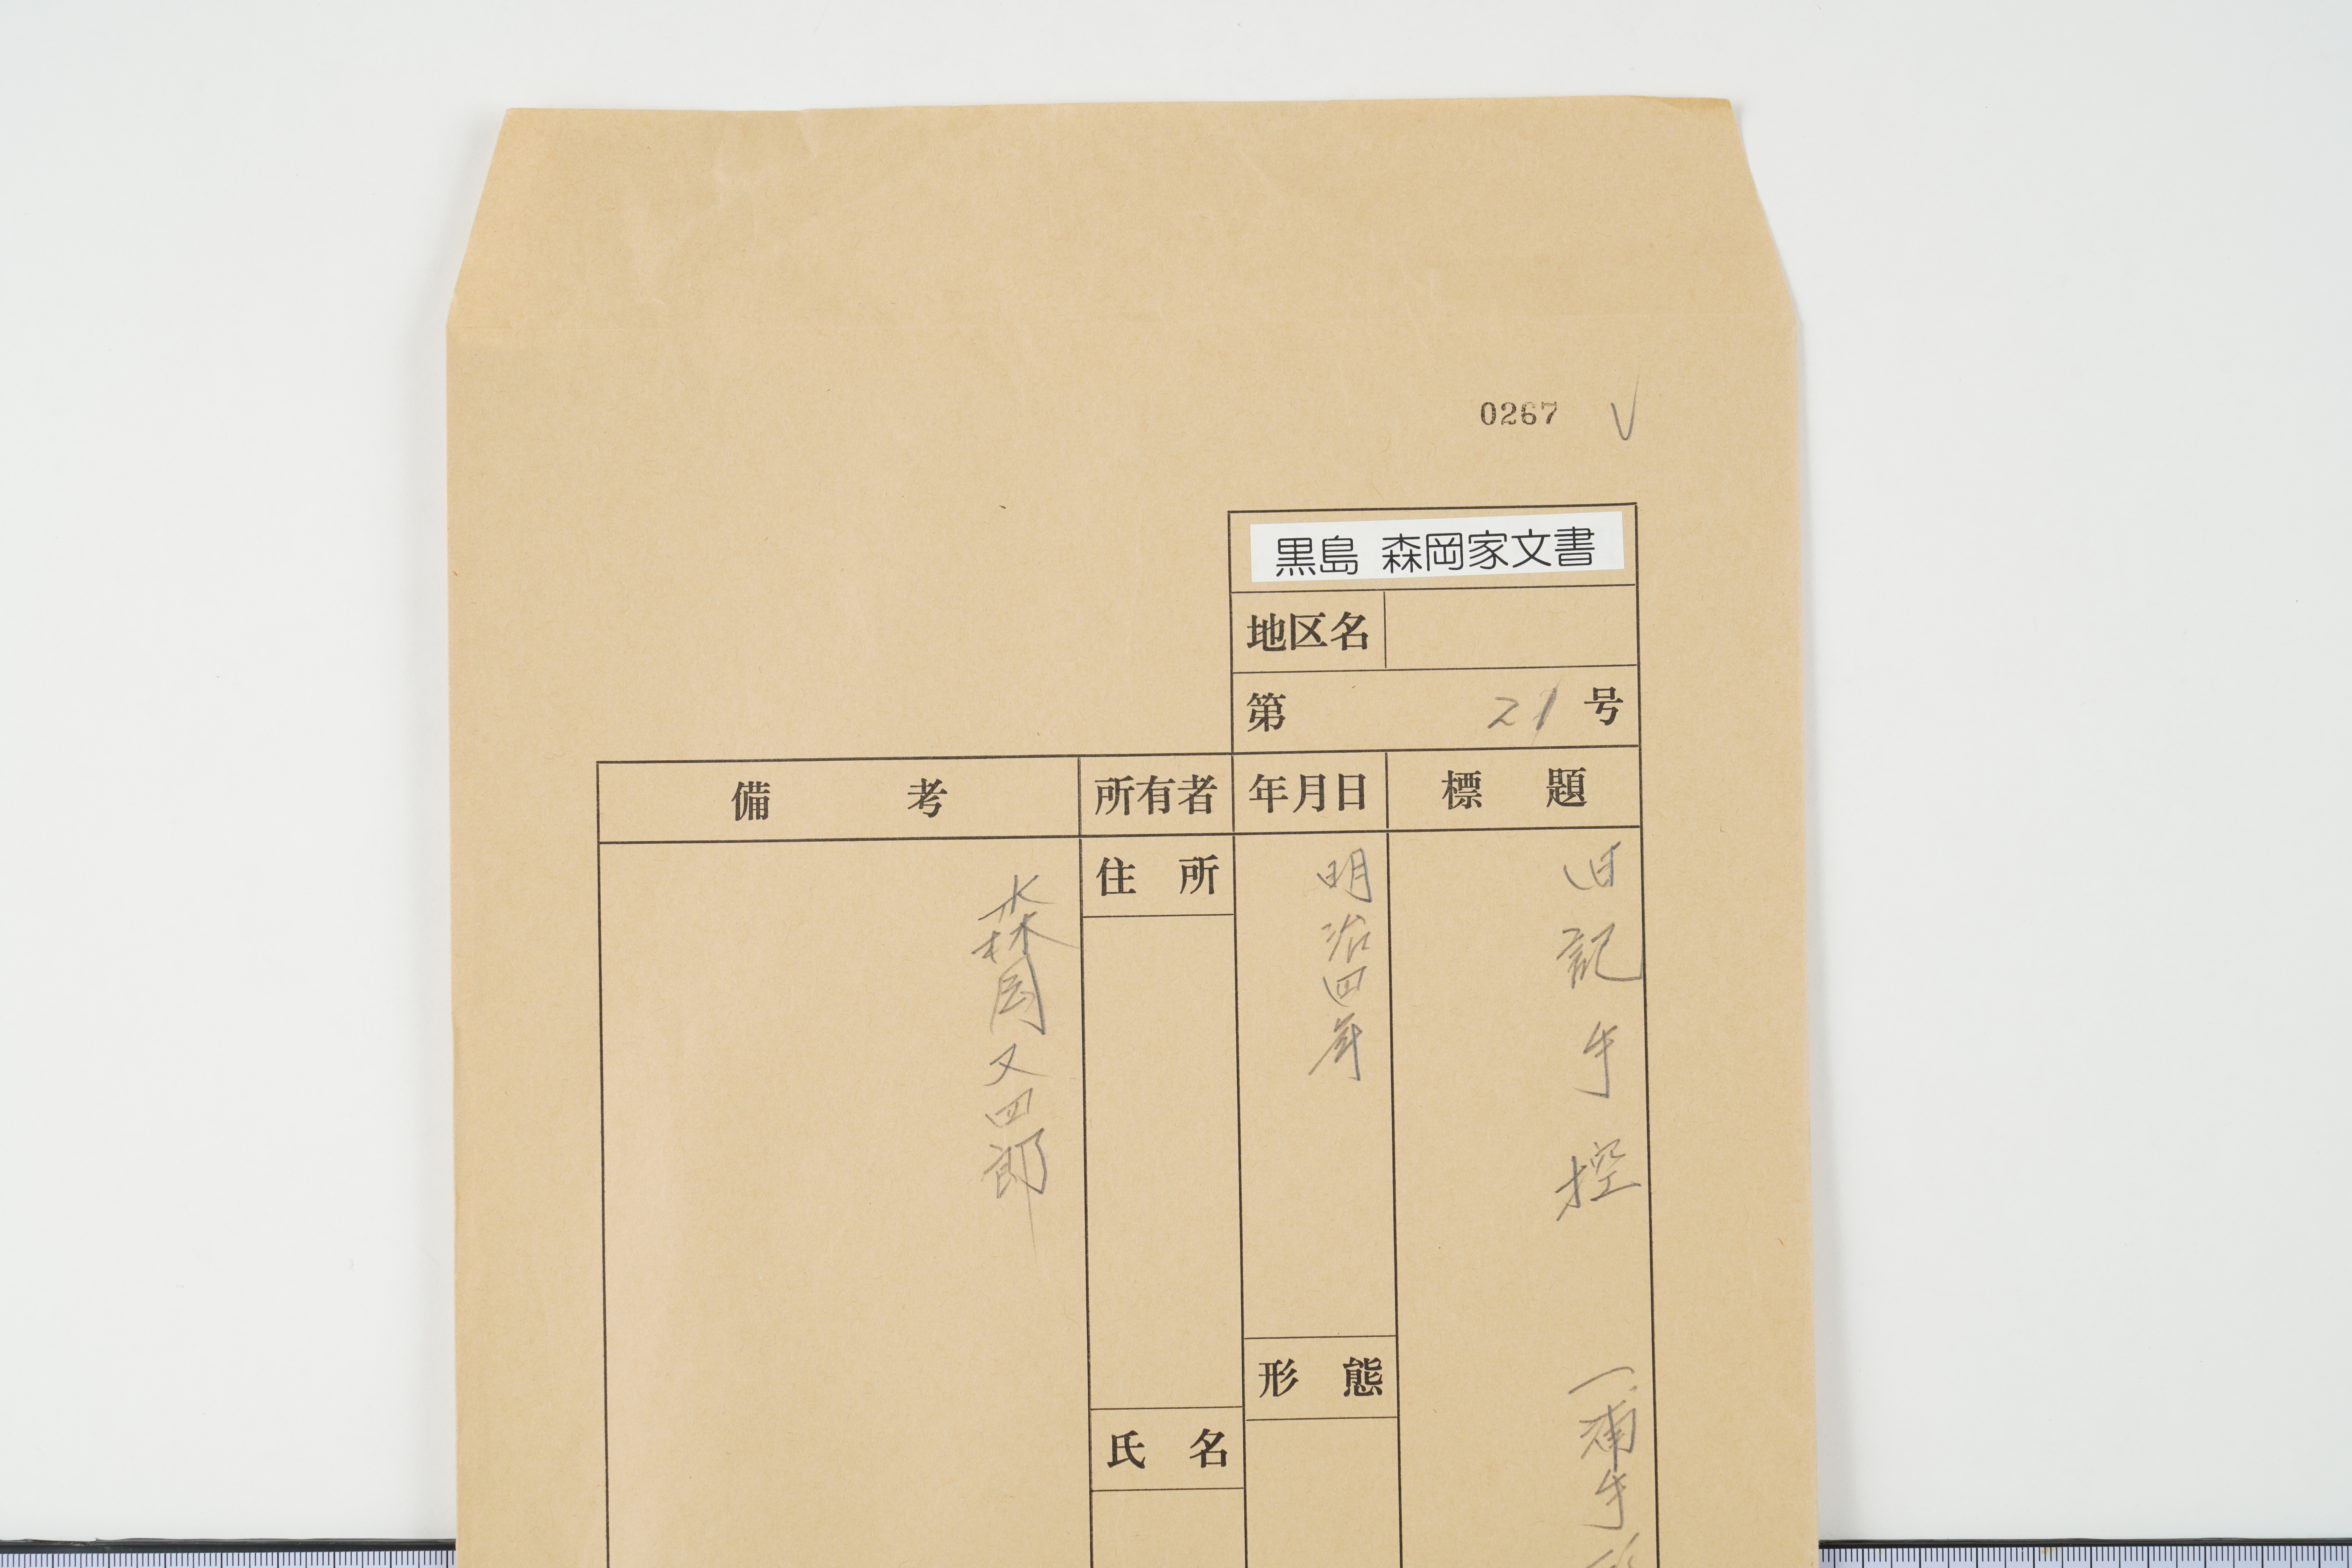 0267
黒島 森岡家文書
地区名
第 21 号
標 題
年月日
所有者
備 考
記手控
浦手
明治四年
形 態
住 所
氏 名
森岡又四郎